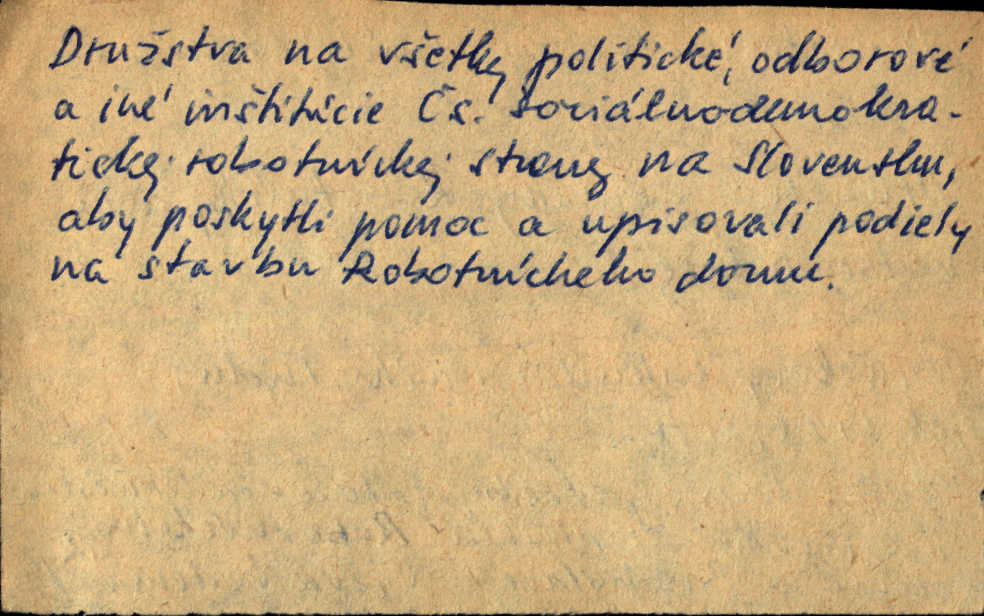 Družstva na všetky politické, odborové
a iné inštitúcie Čs. sociálnodemokra-
tickej robotníckej strany na Slovensku,
aby poskytli pomoc a upisovali podiely
na stavbu Robotníckeho domu.